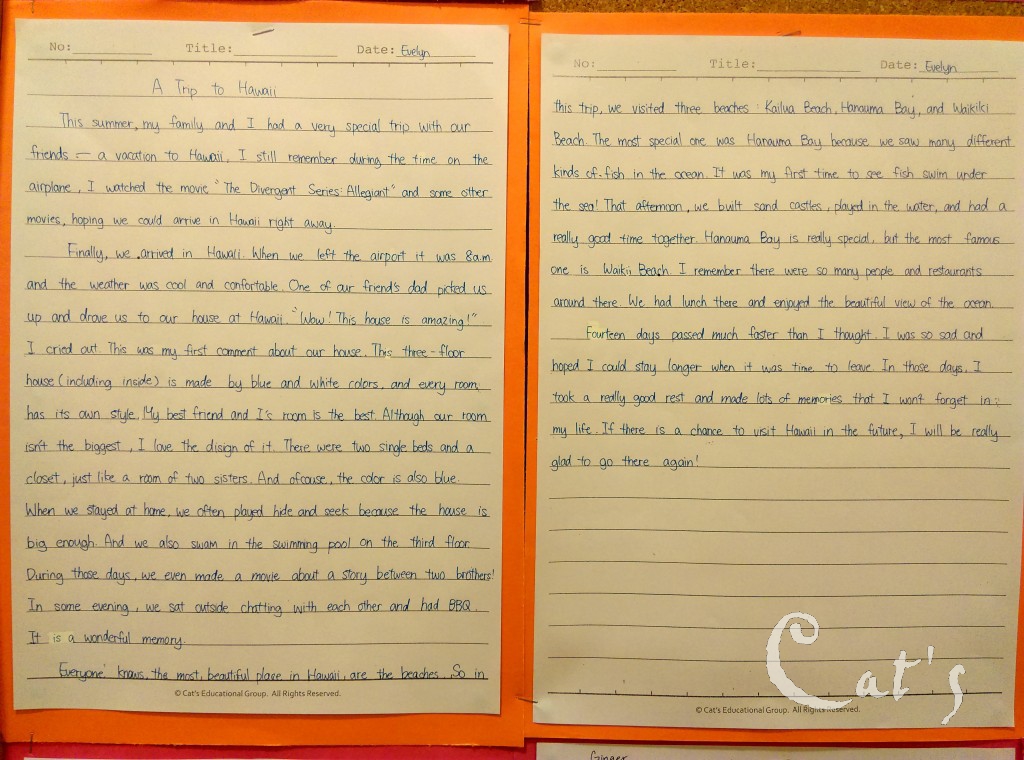 No: Title: Date: Evelyn
A Trip to Hawaii
This summer, my family and I had a very special trip with our
friends — a vacation to Hawaii. I still remember during the time on the
airplane, I watched the movie "The Divergent Series: Allegiant" and some other
movies, hoping we could arrive in Hawaii right away.
Finally, we arrived in Hawaii. When we left the airport it was 8a.m.
and the weather was cool and confortable. One of our friend's dad picted us
up and drove us to our house at Hawaii. "Wow! This house is amazing!"
I cried out. This was my first comment about our house. This three-floor
house (including inside) is made by blue and white colors, and every room
has its own style. My best friend and I's room is the best. Although our room
isn't the biggest, I love the disign of it. There were two single beds and a
closet, just like a room of two sisters. And ofcouse, the color is also blue.
When we stayed at home, we often played hide and seek because the house is
big enough. And we also swam in the swimming pool on the third floor.
During those days, we even made a movie about a story between two brothers!
In some evening, we sat outside chatting with each other and had BBQ.
It is a wonderful memory.
Everyone knows, the most beautiful place in Hawaii, are the beaches. So in
© Cat's Educational Group. All Rights Reserved.
No: Title: Date: Evelyn
this trip, we visited three beaches: Kailua Beach, Hanauma Bay, and Waikiki
Beach. The most special one was Hanauma Bay because we saw many different
kinds of fish in the ocean. It was my first time to see fish swim under
the sea! That afternoon, we built sand castles, played in the water, and had a
really good time together. Hanauma Bay is really special, but the most famous
one is Waikii Beach. I remember there were so many people and restaurants
around there. We had lunch there and enjoyed the beautiful view of the ocean.
Fourteen days passed much faster than I thought. I was so sad and
hoped I could stay longer when it was time to leave. In those days, I
took a really good rest and made lots of memories that I won't forget in
my life. If there is a chance to visit Hawaii in the future, I will be really
glad to go there again!
© Cat's Educational Group. All Rights Reserved.
Cat's
Ginger